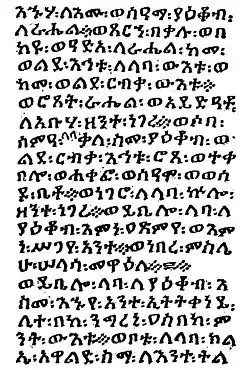 እኁሃ፡ለእሙ፡ወሰዓማ፡ያዕቆብ፡
ለራሔል፡፨ወጸርኀ፡በቃሉ፡ወበ
ከየ፡ለራሔል፡ከመ፡
ወልደ፡እኅቱ፡ለላባ፡ውእቱ፡ወ
ከመ፡ወልደ፡ርብቃ፡ውእቱ፡፨
ወሮጸት፡ራሔል፡ወአይድዓቶ፡
ለአቡሃ፡ዘንተ፡ነገረ፡፨ወሶበ፡
ሰምዐ፡ላባ፡ቃለ፡ስመ፡ያዕቆብ፡ወ
ልደ፡ርብቃ፡እኅቱ፡ሮጸ፡ወተቀ
በሎ፡ወሐቀፎ፡ወሰዓሞ፡ወወሰ
ዶ፡ቤቶ፡፨ወነገሮ፡ለላባ፡ኵሎ፡
ዘንተ፡ነገረ፡፨ወይቤሎ፡ላባ፡ለ
ያዕቆብ፡እምነ፡ዐጽምየ፡ወእም
ነ፡ሥጋየ፡አንተ፡፨ወነበረ፡ምስሌ
ሁ፡ሠላሳ፡መዋዕለ፡፨
ወይቤሎ፡ላባ፡ለያዕቆብ፡እ
ስመ፡እኁየ፡አንተ፡ኢትትቀነይ፡
ሊተ፡በከ፡ንግረኒ፡ዐስበከ፡ም
ንት፡ውእቱ፡፨ወቦቱ፡ለላባ፡ክል
ኤ፡አዋልድ፡ስማ፡ለእንተ፡ትል